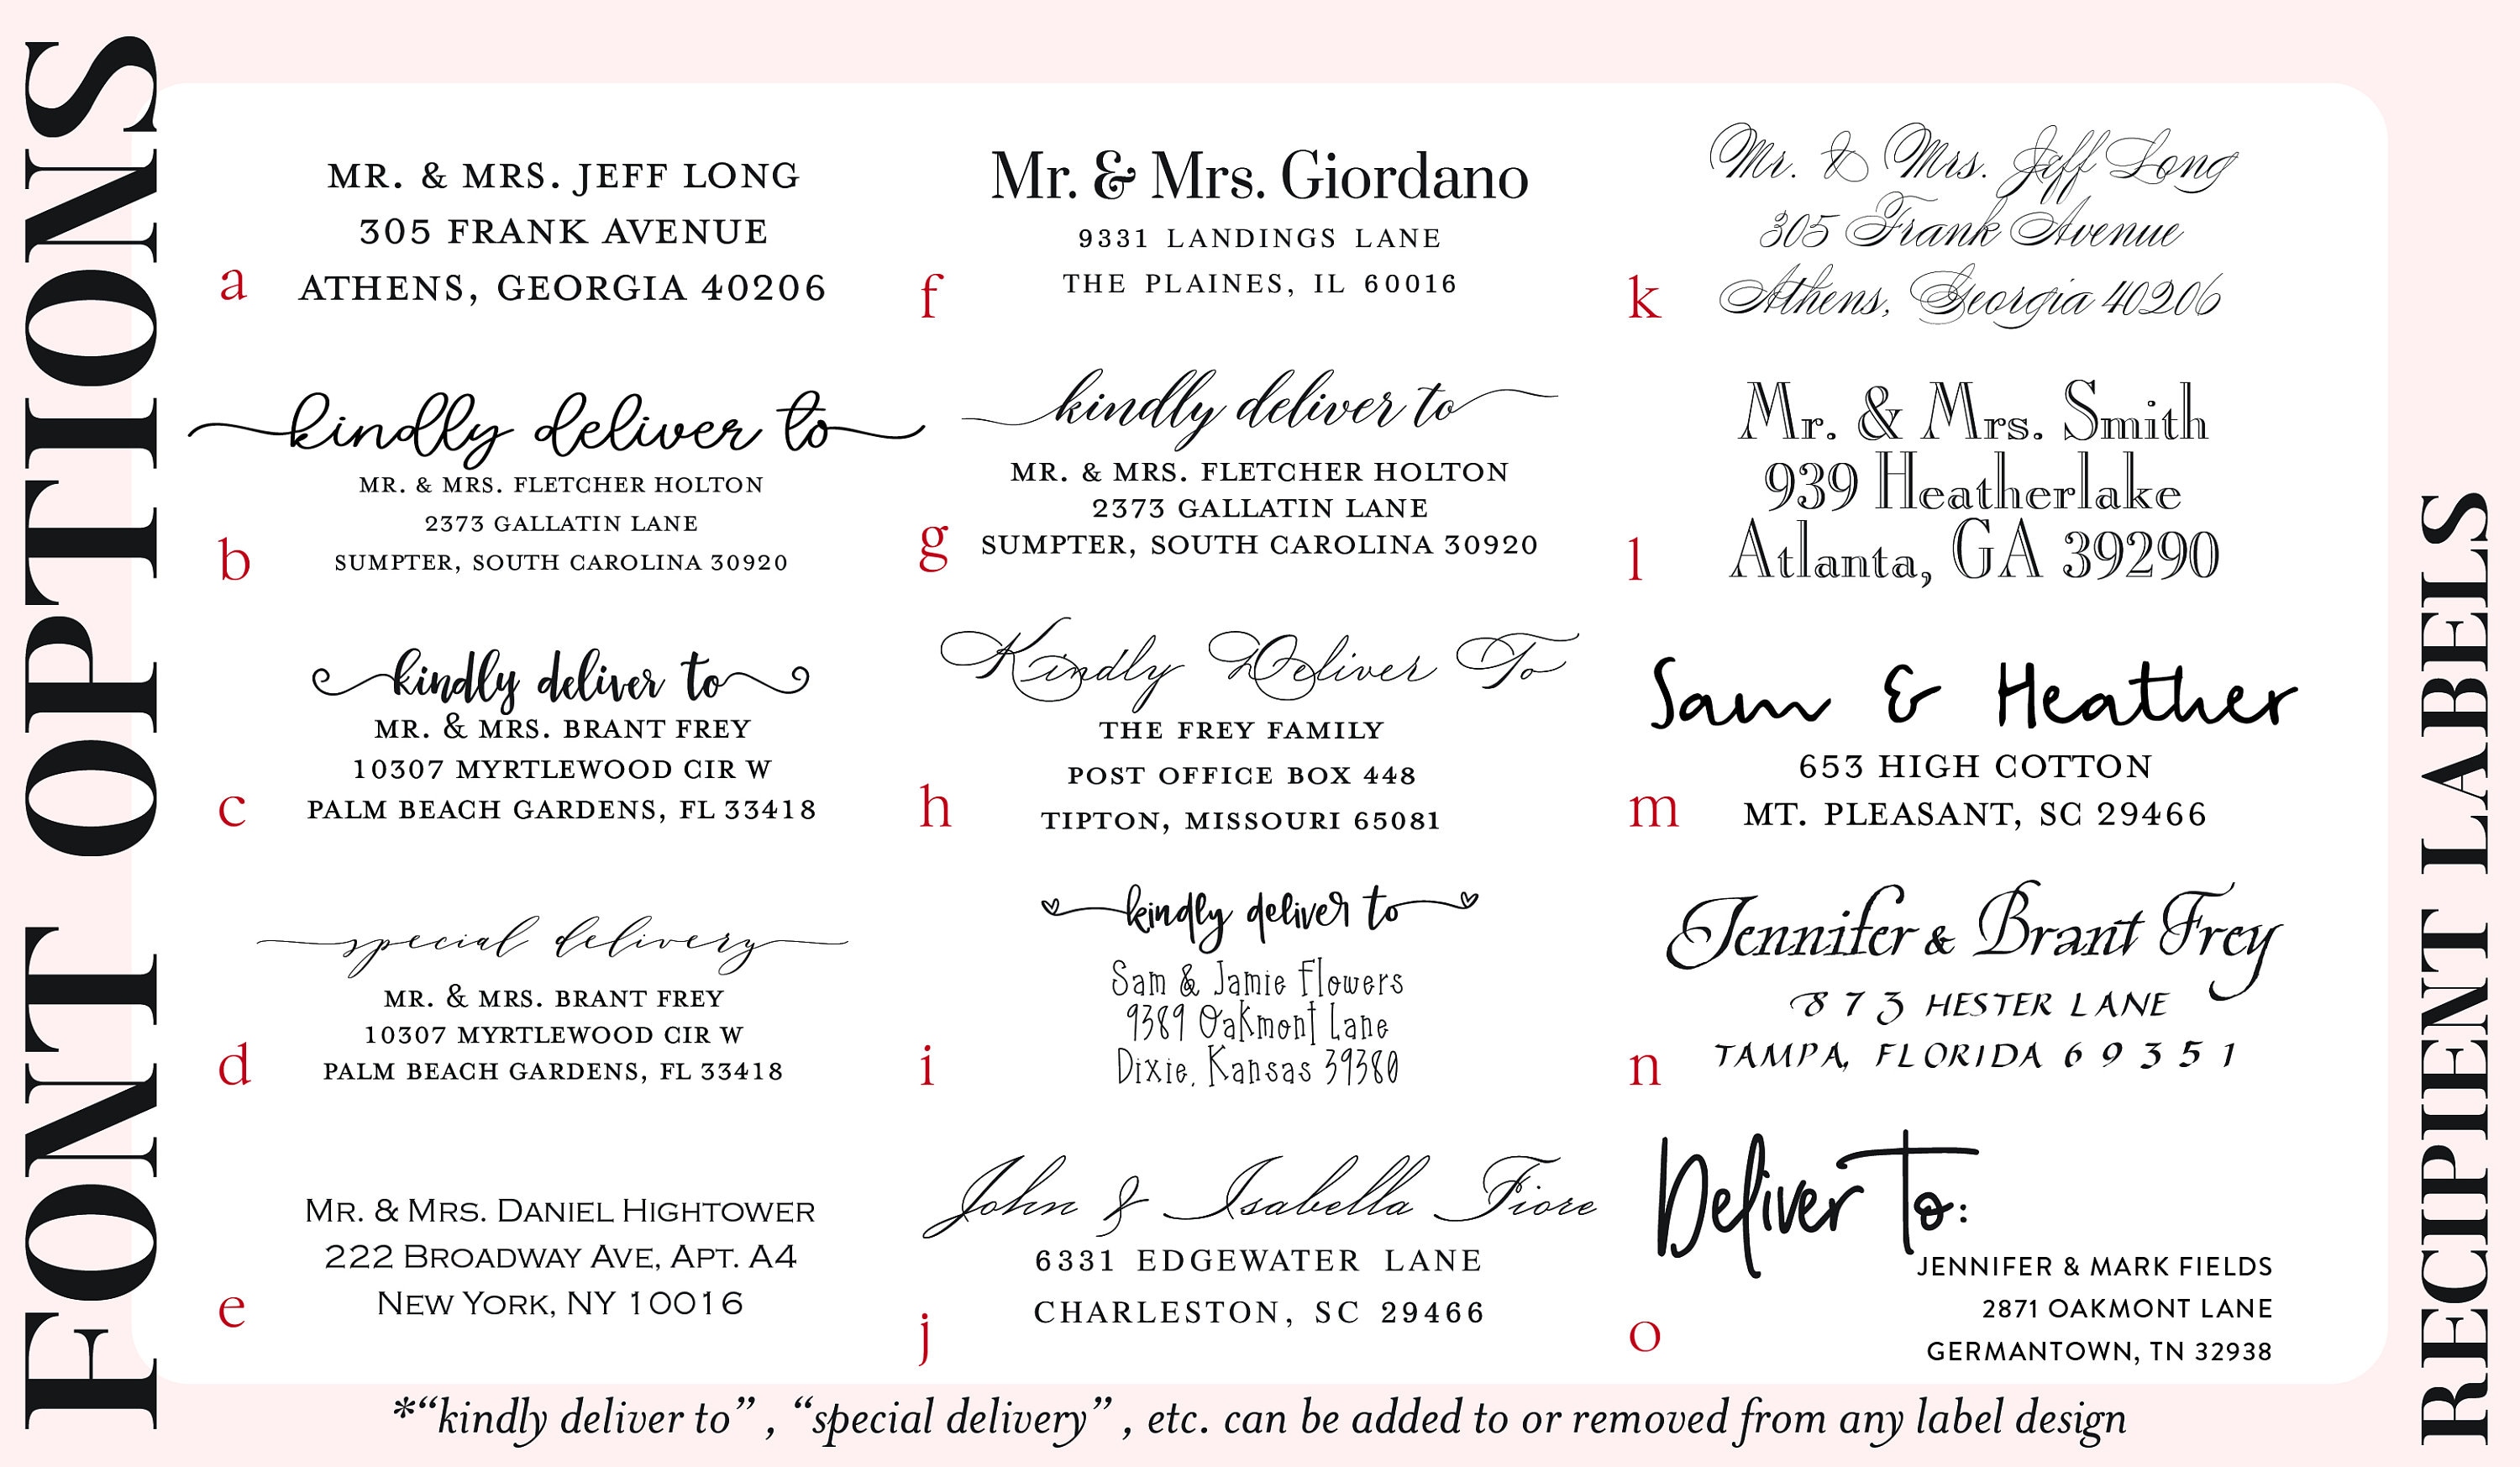 FONT OPTIONS
MR. & MRS. JEFF LONG
305 FRANK AVENUE
ATHENS, GEORGIA 40206
a
kindly deliver to
MR. & MRS. FLETCHER HOLTON
2373 GALLATIN LANE
SUMPTER, SOUTH CAROLINA 30920
b
kindly deliver to
MR. & MRS. BRANT FREY
10307 MYRTLEWOOD CIR W
PALM BEACH GARDENS, FL 33418
c
special delivery
MR. & MRS. BRANT FREY
10307 MYRTLEWOOD CIR W
PALM BEACH GARDENS, FL 33418
d
MR. & MRS. DANIEL HIGHTOWER
222 BROADWAY AVE, APT. A4
NEW YORK, NY 10016
e
Mr. & Mrs. Giordano
9331 LANDINGS LANE
THE PLAINES, IL 60016
f
kindly deliver to
MR. & MRS. FLETCHER HOLTON
2373 GALLATIN LANE
SUMPTER, SOUTH CAROLINA 30920
g
Kindly Deliver To
THE FREY FAMILY
POST OFFICE BOX 448
TIPTON, MISSOURI 65081
h
kindly deliver to
Sam & Jamie Flowers
9389 Oakmont Lane
Dixie, Kansas 39380
i
John & Isabella Fiore
6331 EDGEWATER LANE
CHARLESTON, SC 29466
j
Mr. & Mrs. Jeff Long
305 Frank Avenue
Athens, Georgia 40206
k
Mr. & Mrs. Smith
939 Heatherlake
Atlanta, GA 39290
l
Sam & Heather
653 HIGH COTTON
MT. PLEASANT, SC 29466
m
Jennifer & Brant Frey
873 HESTER LANE
TAMPA, FLORIDA 69351
n
Deliver To:
JENNIFER & MARK FIELDS
2871 OAKMONT LANE
GERMANTOWN, TN 32938
o
RECIPIENT LABELS
*“kindly deliver to” , “special delivery” , etc. can be added to or removed from any label design